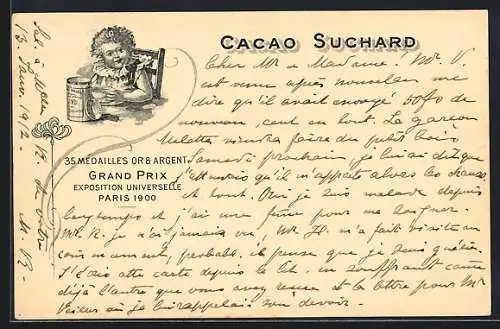 CACAO SUCHARD
35 MEDAILLES OR & ARGENT.
GRAND PRIX
EXPOSITION UNIVERSELLE
PARIS 1900
Cher Mr & Madame! Mr. V.
est venu après nouvelan me
dire qu'il avait envoyé 50 fo de
nouveau, cent en tout. Le garçon
viendra faire du petit bois
Samedi prochain, je lui ai dit que
j'attendais qu'il m'apporte alors les choses
et tout. Oui je suis malade depuis
longtemps et j'ai une pour me soigner.
Mr. R. je n'ai jamais vu, Mr. H. m'a fait visite au
, probabl. il pense que je suis guérie.
J'écris cette carte depuis le lit, en souffrant comme
déjà l'autre que vous avez reçue et la lettre pour Mr
où je lui rappelais son devoir.
13. Janv. 1912.
M. R.